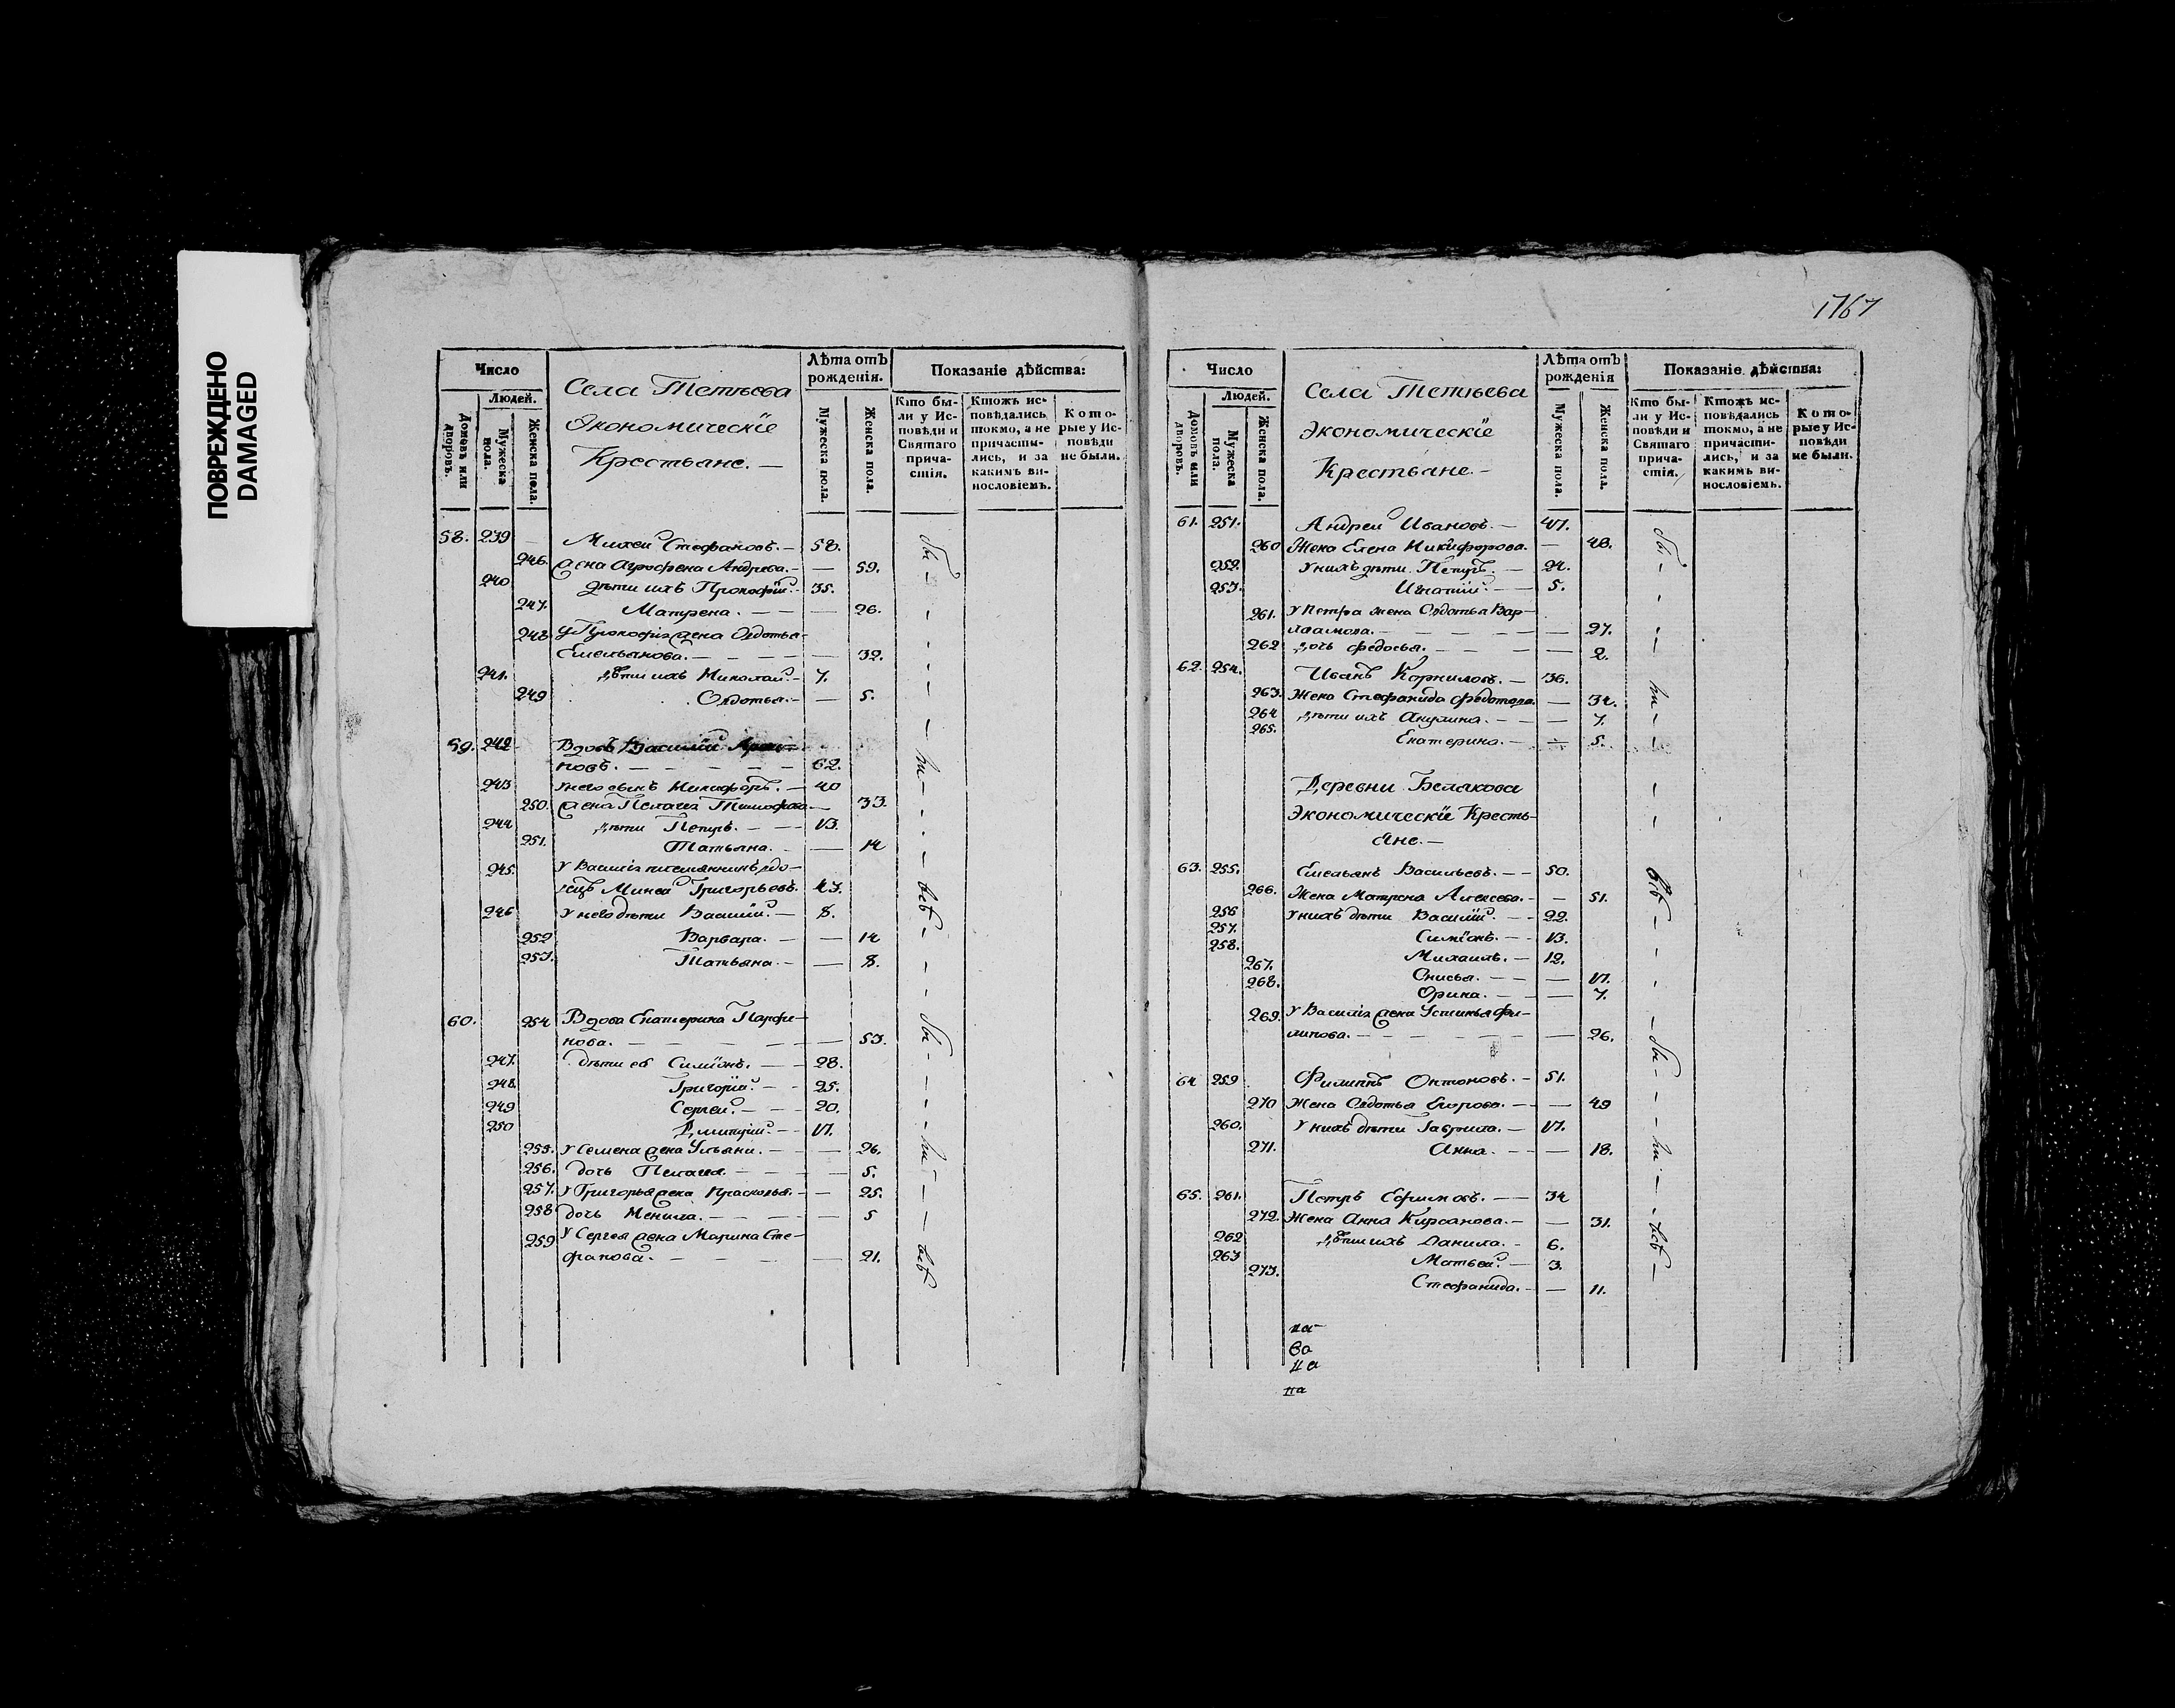 ПОВРЕЖДЕНО
DAMAGED
Число
Людей.
Домовъ или дворовъ.
Мужеска пола.
Женска пола.
Села Тетьева
Экономическїе
Крестьяне. —
Лѣта отъ рожденія.
Мужеска пола.
Женска пола.
Показаніе дѣйства:
Кто были у Исповѣди и Святаго причастія.
Ктожъ исповѣдались токмо, а не причастились, и за какимъ винословіемъ.
Которые у Исповѣди не были.
58. 239 Михей Стефановъ. — 58.
246. жена Агрофена Андрева. — — 59.
240 дѣти ихъ Прокофїй. 35.
247. Матрена. — — — 26.
248 у Прокофія жена Овдотья
Емельянова. — — — — 32.
241. дѣти ихъ Николай. — 7.
249 Овдотья. — — 5.
59. 242 Вдовъ Василїй
новъ. — — — — 62.
243 у него сынъ Никифоръ. — 40
250. жена Пелагея Тимофева — 33.
244 дѣти Петръ. — — 13.
251. Татьяна. — — 14
245. у Василія племянникъ вдо-
вецъ Миней Григорьевъ. 43.
246 у него дѣти Василїй. — 8.
252 Варвара. — — 14
253. Татьяна. — — 8.
60. 254 Вдова Екатерина Парфе-
нова. — — — — 53.
247. дѣти её Симїонъ. — — 28.
248. Григорїй. — — 25.
249 Сергей. — — 20.
250 Димитрїй. — — 17.
255. у Семена жена Ульяни. — — 26.
256. дочь Пелагея. — — — 5.
257. у Григорья жена Прасковья. — — 25.
258 дочь Менила. — — — 5
259 у Сергея жена Марина Сте-
фанова. — — — — 21.
бы — ли — всѣ — бы — ли — всѣ
1767
Число
Людей.
Домовъ или дворовъ.
Мужеска пола.
Женска пола.
Села Тетьева
Экономическїе
Крестьяне. —
Лѣта отъ рожденія
Мужеска пола.
Женска пола.
Показаніе дѣйства:
Кто были у Исповѣди и Святаго причастія.
Ктожъ исповѣдались токмо, а не причастились, и за какимъ винословіемъ.
Которые у Исповѣди не были.
61. 251. Андрей Ивановъ. — 47.
260 Жена Елена Никифорова. — 48.
252. У нихъ дѣти Петръ. — 24.
253. Игнатїй. — 5.
261. у Петра жена Овдотья Вар-
лаамова. — — — — 27.
262 дочь Федосья. — — — 2.
62. 254. Иванъ Корниловъ. — 36.
263. Жена Стефанида Федотова — 34.
264 дѣти ихъ Акулина. — — 7.
265. Екатерина. — — 5.
Деревни Белякова
Экономическїе Кресть-
яне. —
63. 255. Емельянъ Васильевъ. — — 50.
266. Жена Матрена Алексева. — — 51.
256 У нихъ дѣти Василїй. — — 22.
257. Симїонъ. — — 13.
258. Михаилъ. — 12.
267. Онисья. — — — 17.
268. Орина. — — — 7.
269. у Василія жена Устинья Фи-
липова. — — — — 26.
64 259 Филиппъ Онтоновъ. — 51.
270 Жена Овдотья Егорова. — — 49
260. У нихъ дѣти Гаврила. — 17.
271. Анна. — — — 18.
65. 261. Петръ Ефимовъ. — — 34
272. Жена Анна Кирсанова. — — 31.
262 дѣти ихъ Данила. — 6.
263 Матвей. — 3.
273. Стефанида. — — 11.
бы — ли — всѣ — бы — ли — всѣ —